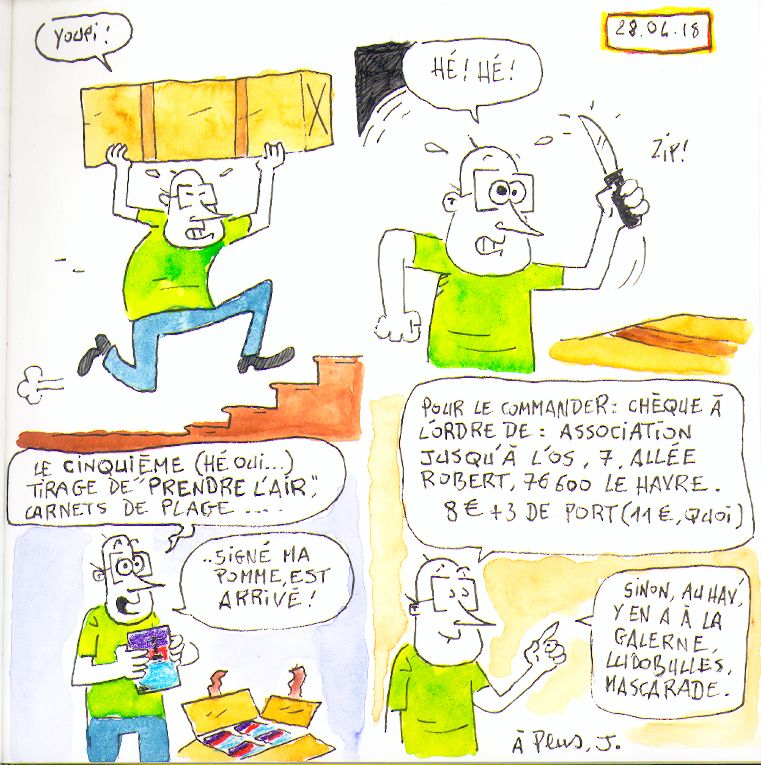 YOUPI!
28.04.18
HÉ! HÉ!
ZIP!
LE CINQUIÈME (HÉ OUI...)
TIRAGE DE "PRENDRE L'AIR",
CARNETS DE PLAGE ....
..SIGNÉ MA
POMME, EST
ARRIVÉ!
POUR LE COMMANDER: CHÈQUE À
L'ORDRE DE: ASSOCIATION
JUSQU'À L'OS, 7, ALLÉE
ROBERT, 76600 LE HAVRE.
8€ +3 DE PORT (11€, QUOI)
SINON, AU HAV',
Y EN A À LA
GALERNE,
LUDOBULLES,
MASCARADE.
À PLUS, J.